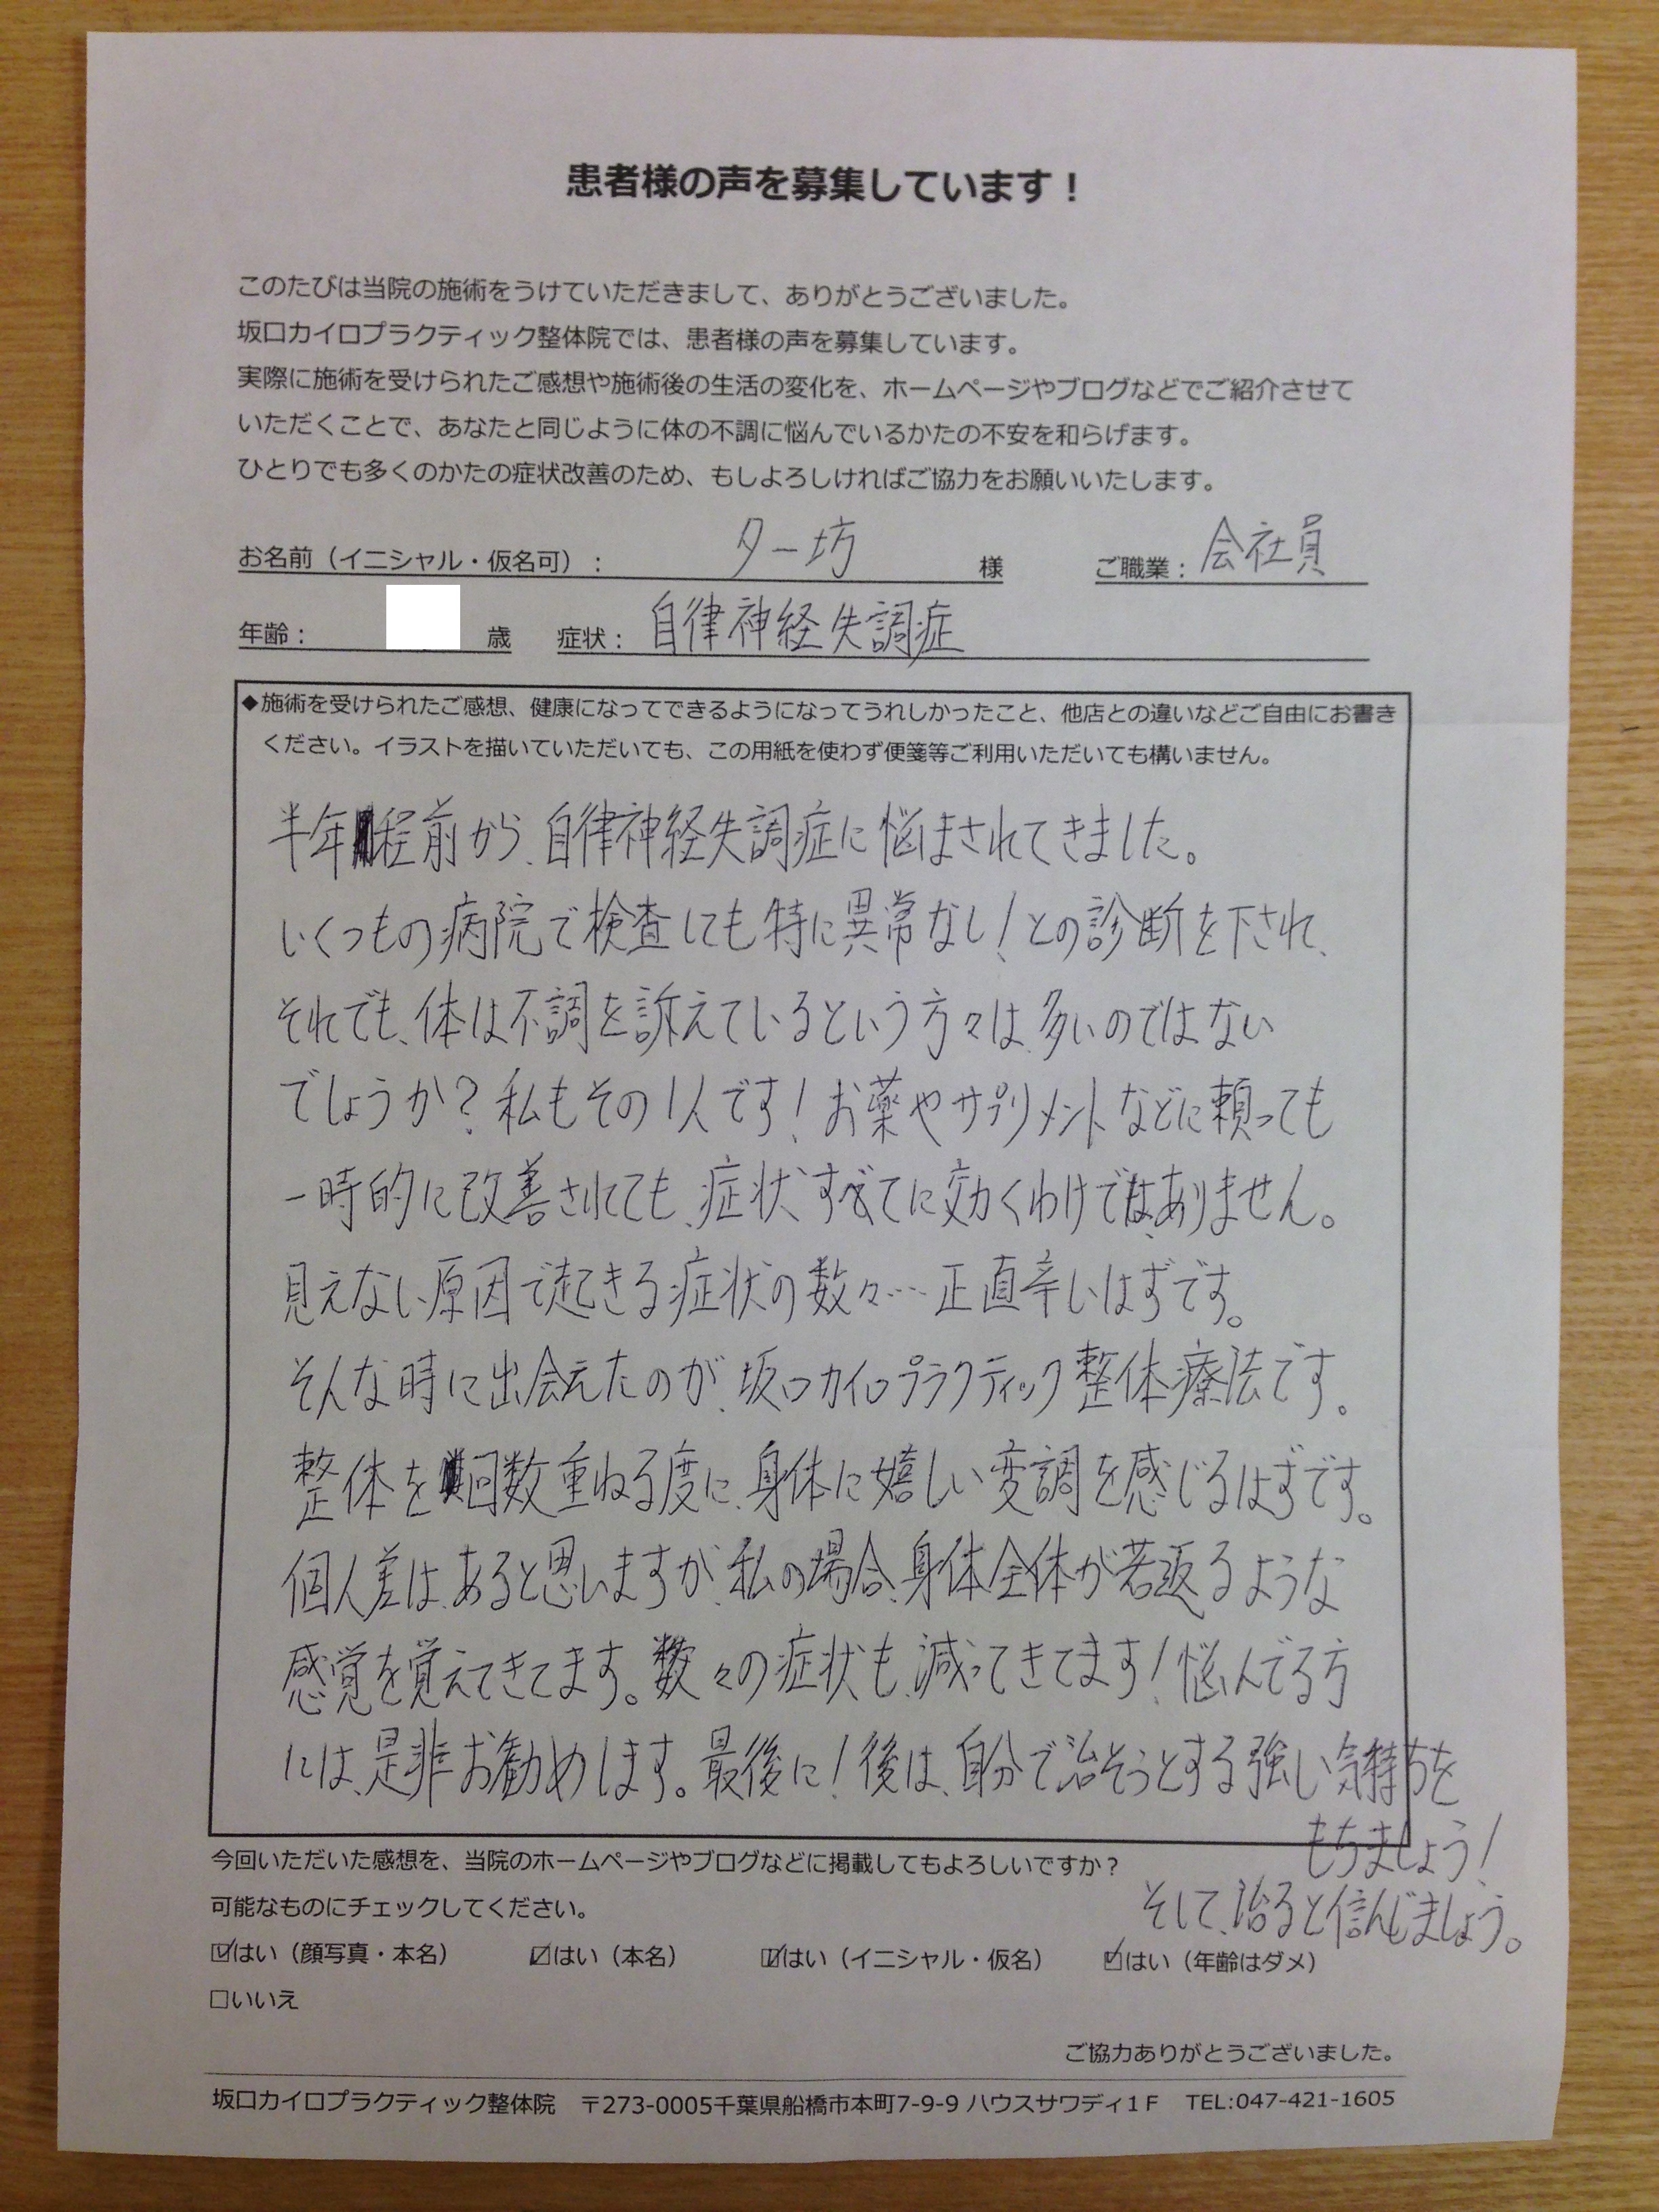 患者様の声を募集しています！
このたびは当院の施術をうけていただきまして、ありがとうございました。
坂口カイロプラクティック整体院では、患者様の声を募集しています。
実際に施術を受けられたご感想や施術後の生活の変化を、ホームページやブログなどでご紹介させて
いただくことで、あなたと同じように体の不調に悩んでいるかたの不安を和らげます。
ひとりでも多くのかたの症状改善のため、もしよろしければご協力をお願いいたします。
お名前（イニシャル・仮名可）： ター坊 様 ご職業： 会社員
年齢： 歳 症状： 自律神経失調症
◆施術を受けられたご感想、健康になってできるようになってうれしかったこと、他店との違いなどご自由にお書き
ください。イラストを描いていただいても、この用紙を使わず便箋等ご利用いただいても構いません。
半年程前から、自律神経失調症に悩まされてきました。
いくつもの病院で検査しても特に異常なし！との診断を下され、
それでも、体は不調を訴えているという方々は、多いのではない
でしょうか？私もその1人です！お薬やサプリメントなどに頼っても
一時的に改善されても、症状すべてに効くわけではありません。
見えない原因で起きる症状の数々…正直辛いはずです。
そんな時に出会えたのが、坂口カイロプラクティック整体療法です。
整体を回数重ねる度に、身体に嬉しい変調を感じるはずです。
個人差は、あると思いますが、私の場合、身体全体が若返るような
感覚を覚えてきてます。数々の症状も、減ってきてます！悩んでる方
には、是非お勧めします。最後に！後は、自分で治そうとする強い気持ちを
もちましょう！
そして、治ると信んじましょう。
今回いただいた感想を、当院のホームページやブログなどに掲載してもよろしいですか？
可能なものにチェックしてください。
☑はい（顔写真・本名） ☑はい（本名） ☑はい（イニシャル・仮名） ☑はい（年齢はダメ）
□いいえ
ご協力ありがとうございました。
坂口カイロプラクティック整体院 〒273-0005千葉県船橋市本町7-9-9 ハウスサワディ１F TEL:047-421-1605